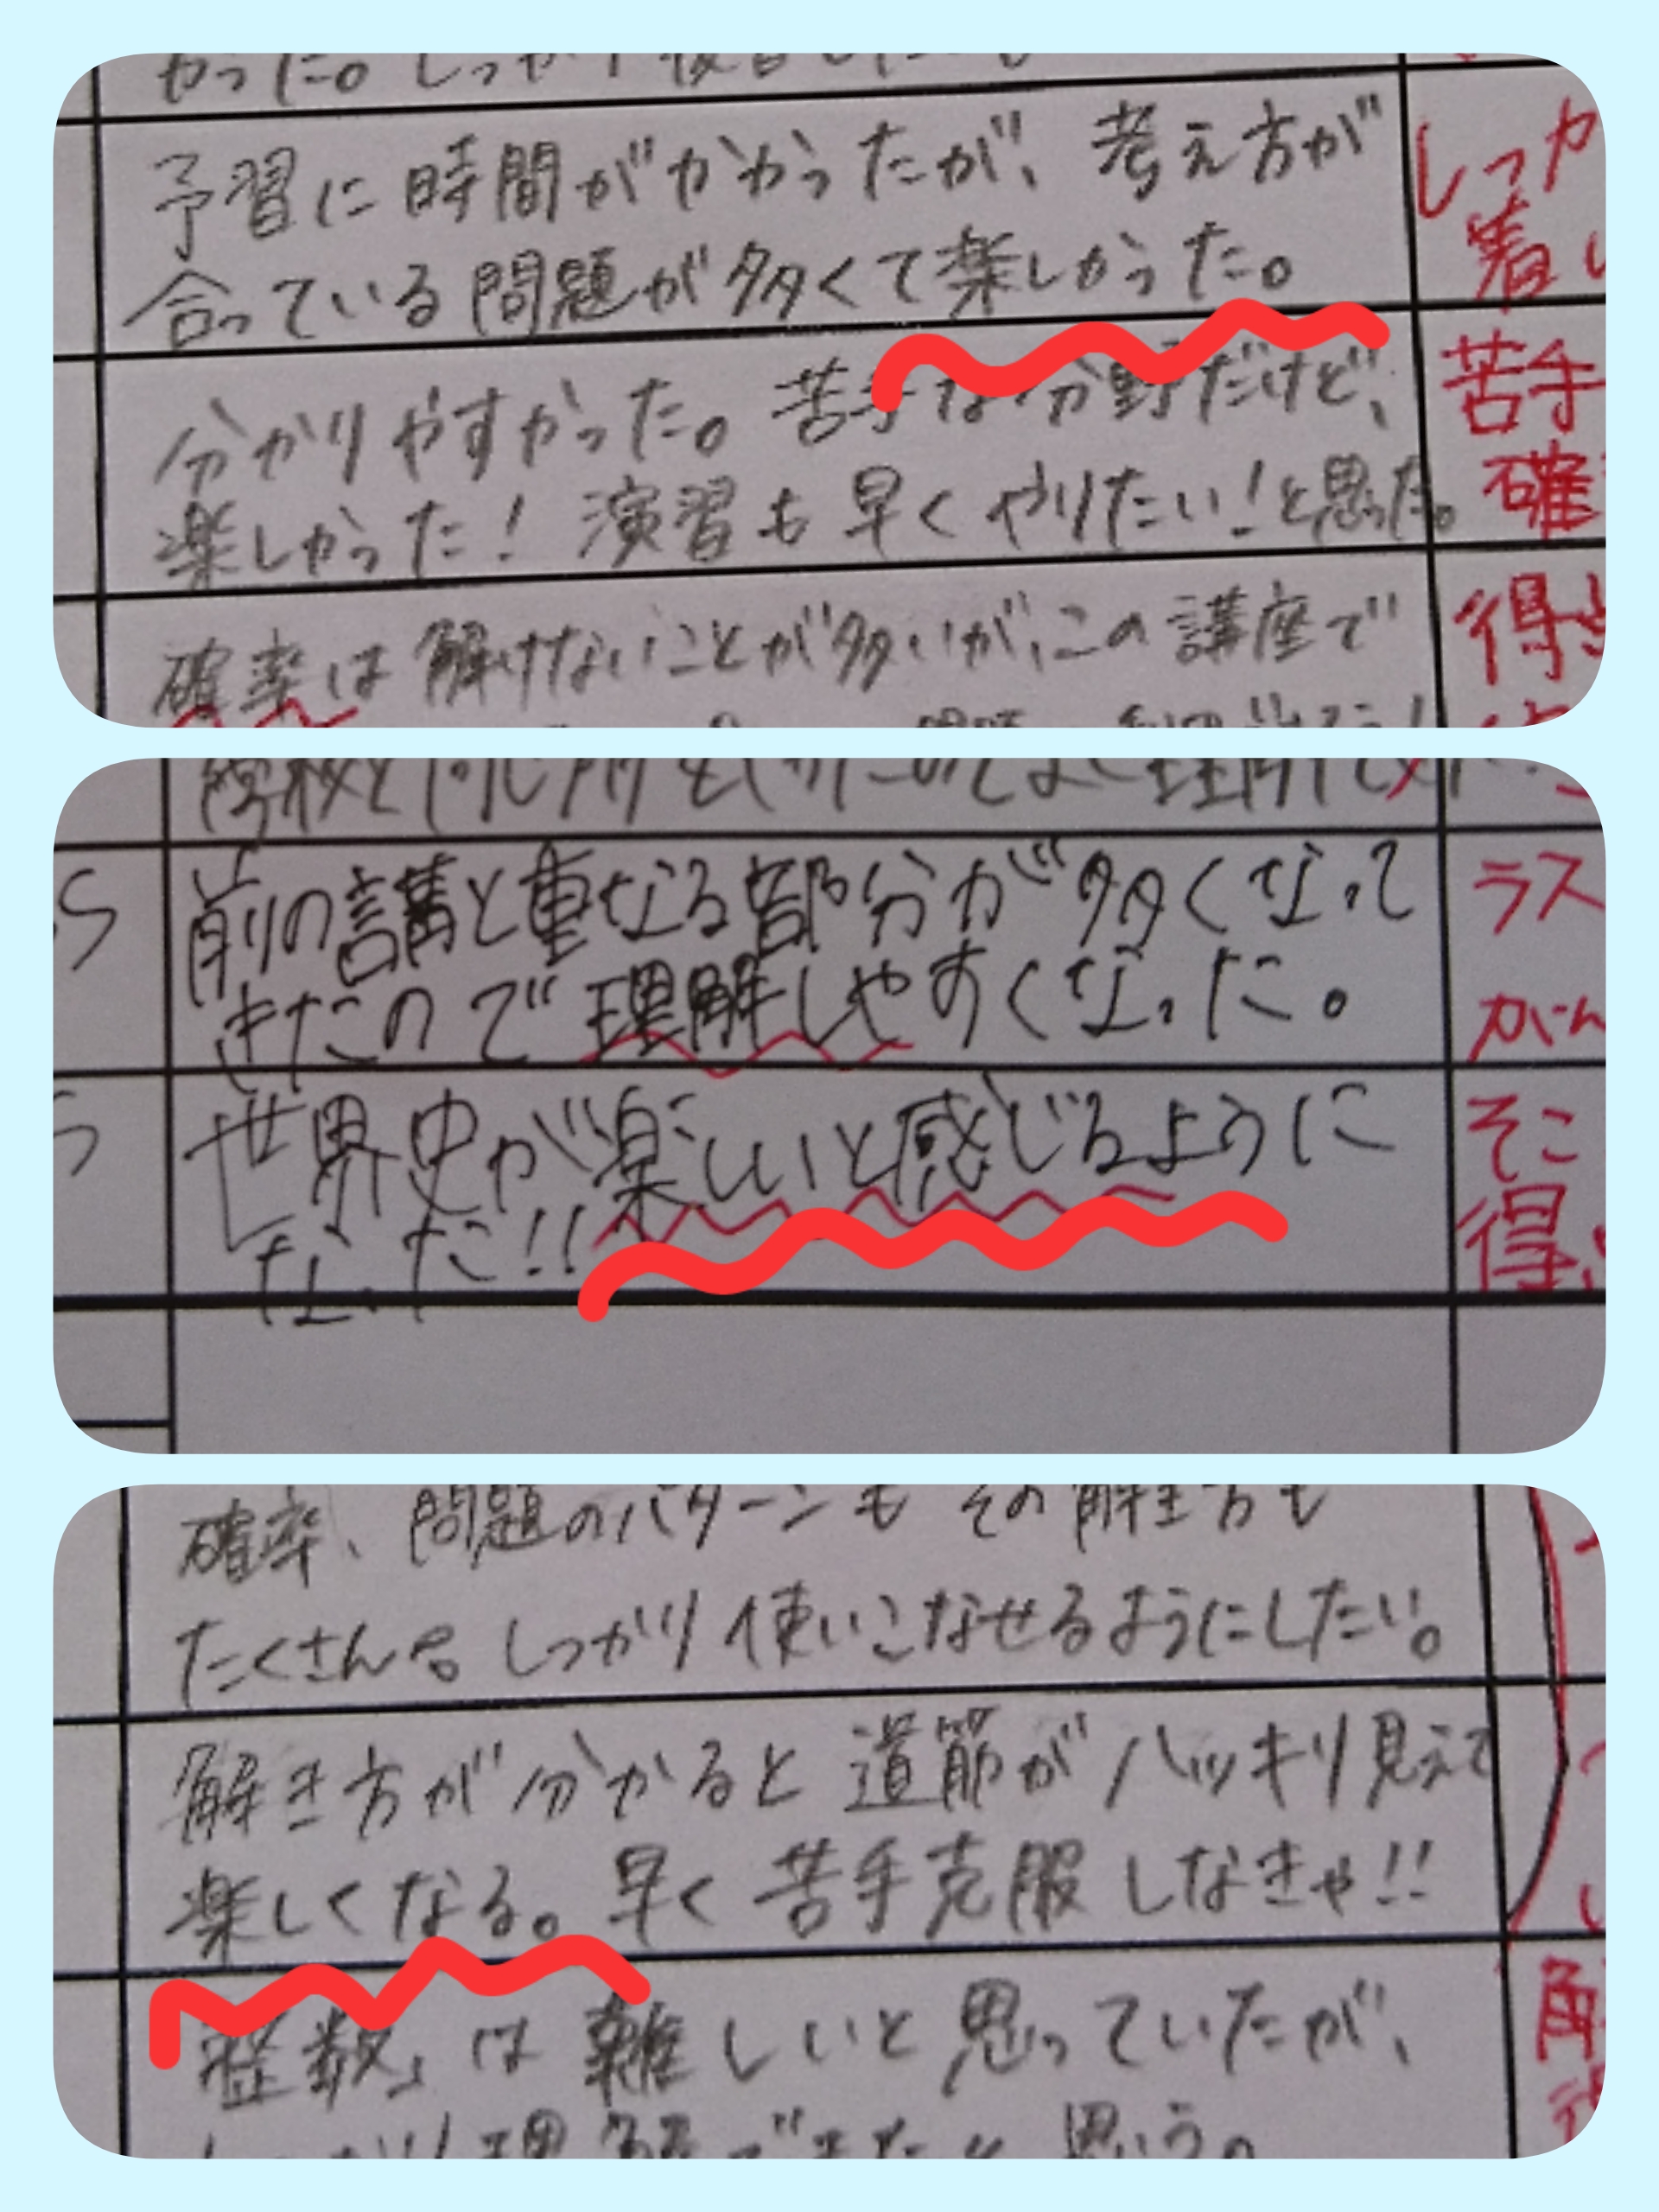 かった。しっかり復習したい
予習に時間がかかったが、考え方が
合っている問題が多くて楽しかった。
しっか
着い
分かりやすかった。苦手な分野だけど、
楽しかった！演習も早くやりたい！と思った。
苦手
確
確率は解けないことが多いが、この講座で
得
前の講と重なる部分が多くなって
きたので理解しやすくなった。
ラス
がん
世界史が楽しいと感じるように
なった!!
そこ
得
確率、問題のパターンもその解き方も
たくさん。しっかり使いこなせるようにしたい。
解き方が分かると道筋がハッキリ見えて
楽しくなる。早く苦手克服しなきゃ!!
整数」は難しいと思っていたが、
理解できたと思う。
解